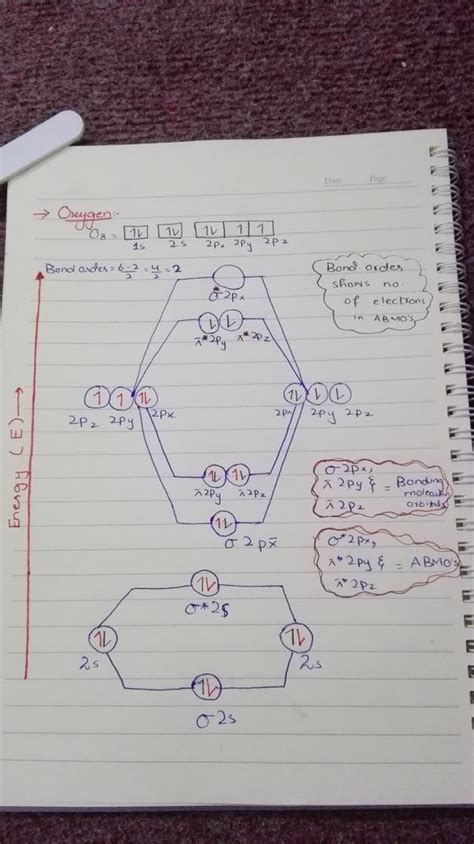 Date Page
→ Oxygen:-
O₈ = 1↿⇂ 1⇂ 1⇂ 1 1
1s 2s 2px 2py 2pz
Bond order = 6-2/2 = 4/2 = 2
Bond order
shows no.
of electrons
in ABMO's
σ*2px
π*2py π*2pz
2pz 2py 2px
2px 2py 2pz
π2py π2pz
σ2px
σ2px,
π2py & = Bonding
molecular
orbitals
π2pz
σ*2px,
π*2py & = ABMO's
π*2pz
σ*2s
2s 2s
σ2s
Energy (E) →